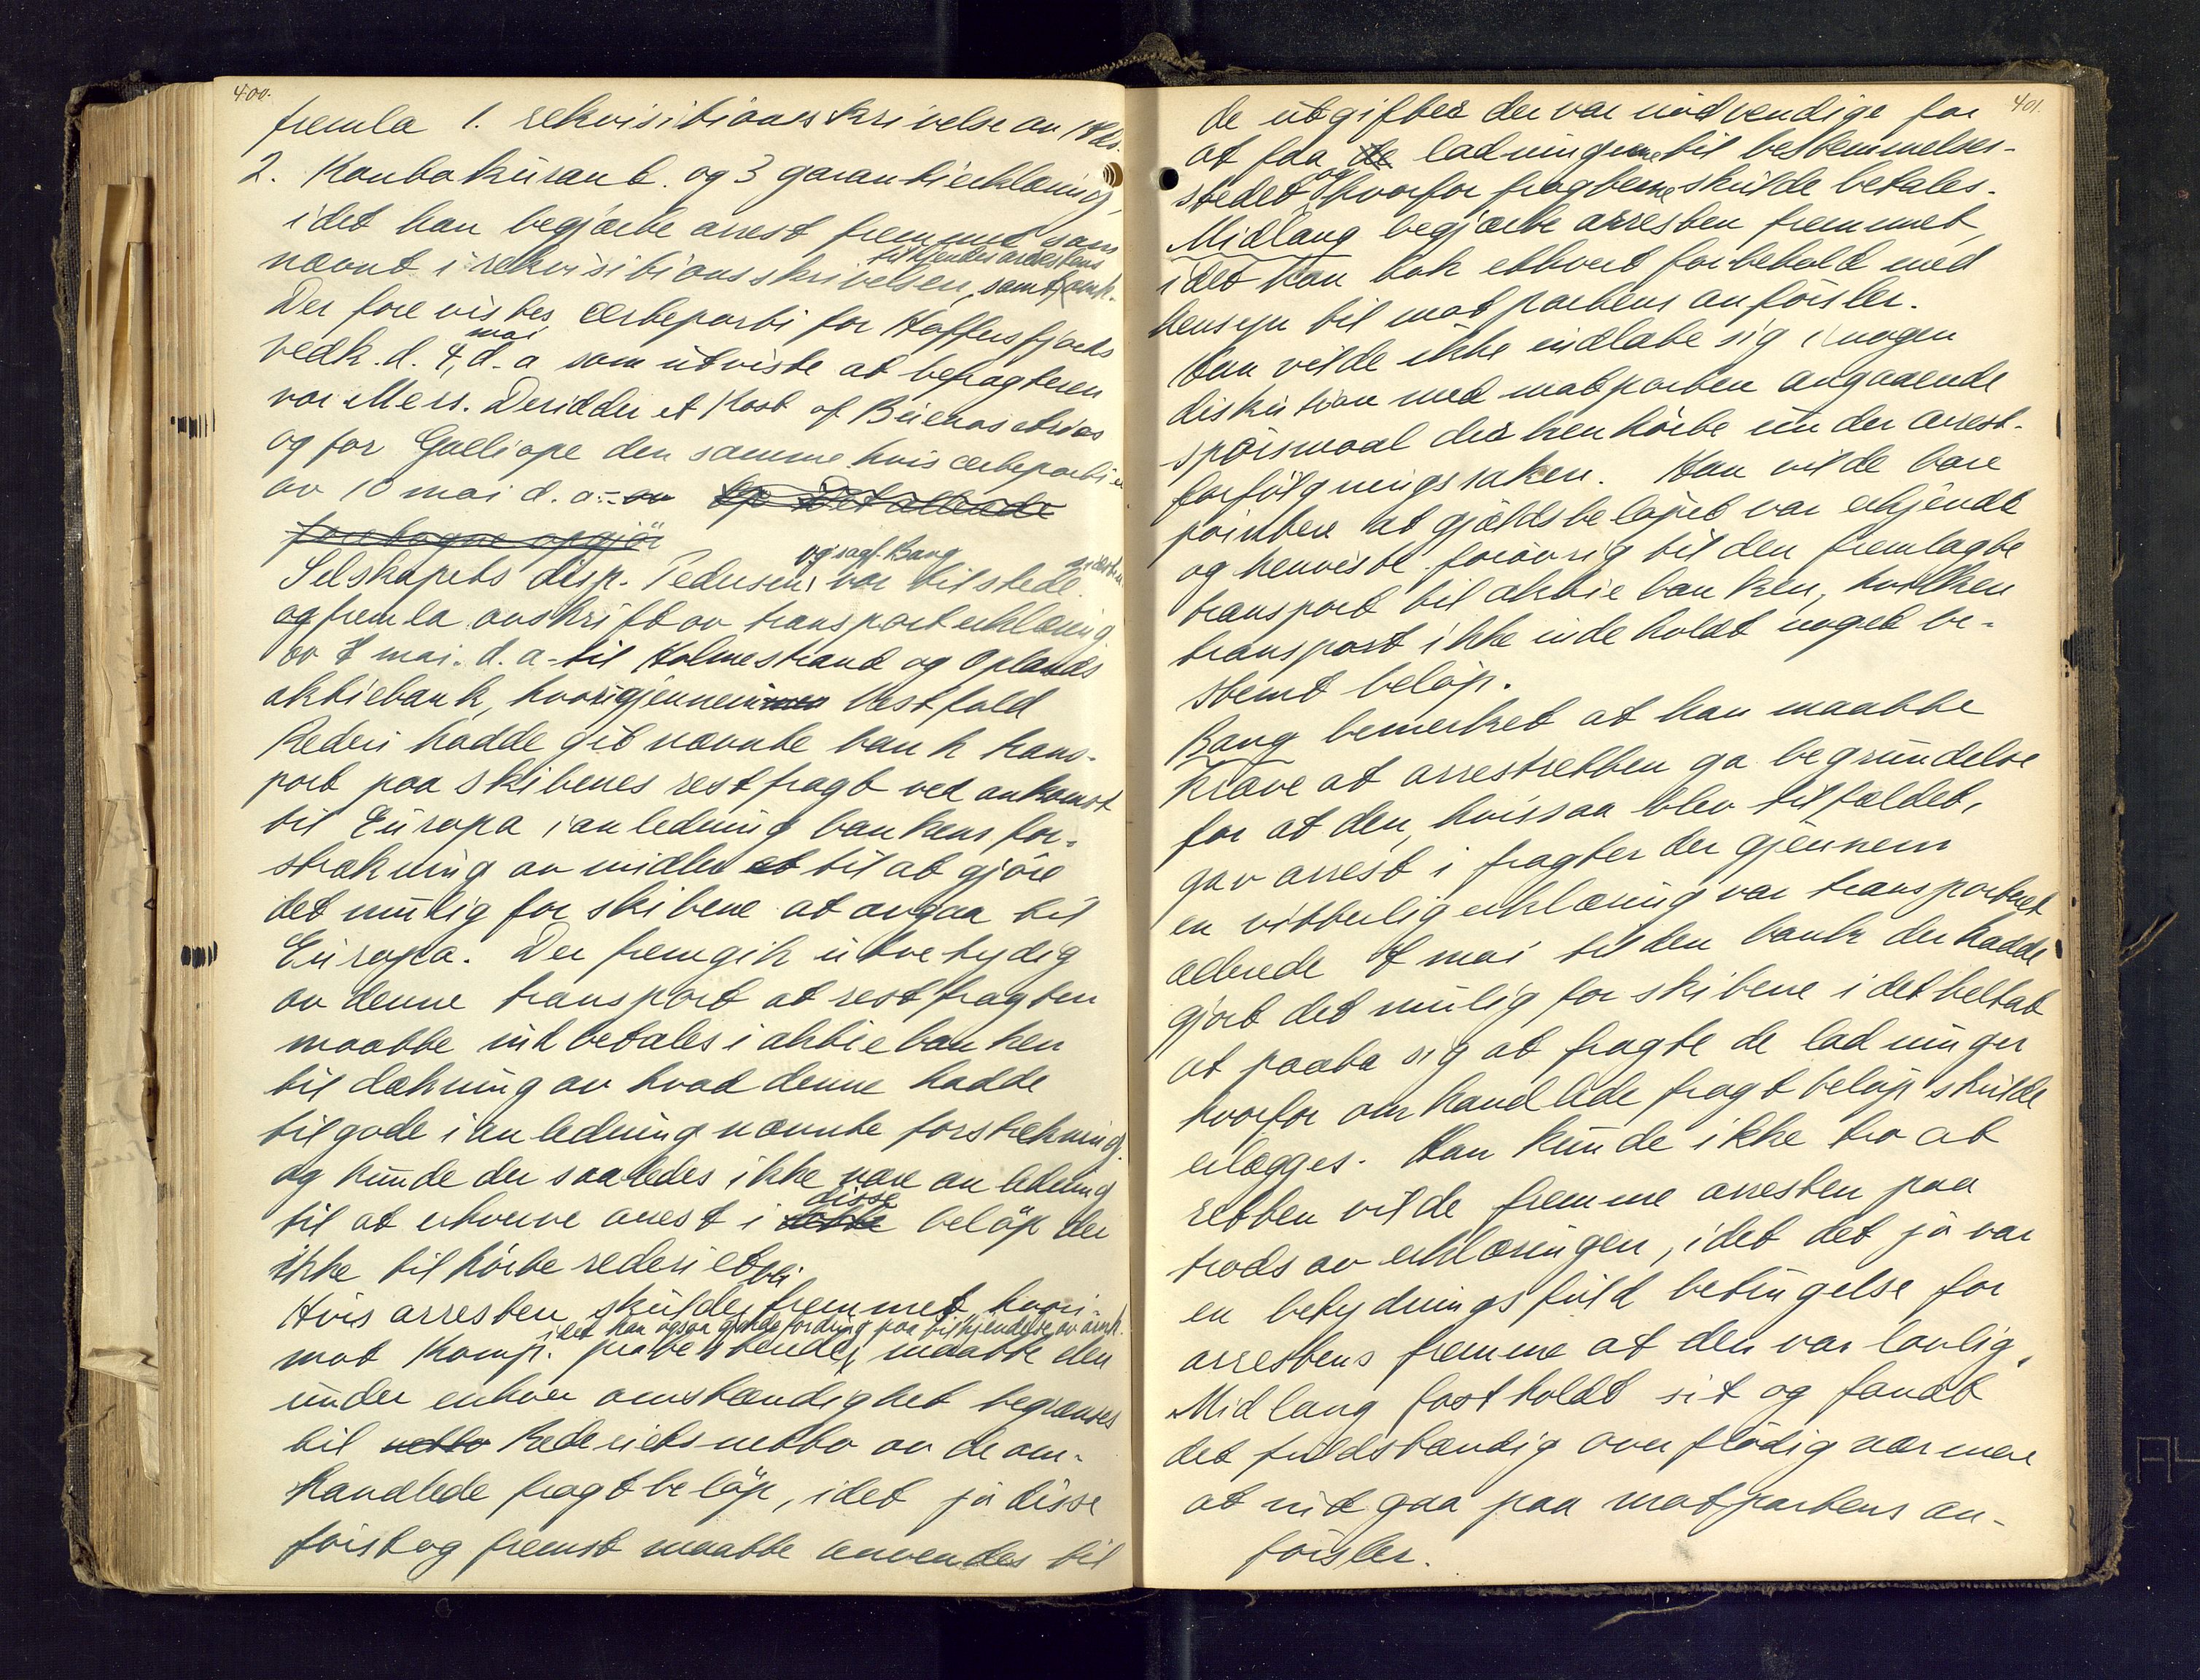 400.
fremla 1. rekvisitionsskrivelse av 18 ds.
2. Kontokurant. og 3 garantierklæring,
idet han begjærte arrest fremmet som
nævnt i rekvisitionsskrivelsen, samt tilkjendes arrestens omk.
Der forevistes certeparti for Haffursfjords
vedk. d. 4, mai d. a som utviste at befragteren
var Mess. Deridder et Kost of Buenos Aires
og for Galliope den samme hvis certeparti er
av 10 mai d. a. - av Op Det allerede
foretagne opgjør
Selskapets disp. Pedersen og sagf. Bang var tilstede. sidstn.
og fremla avskrift av transporterklæring
av 7 mai. d. a. til Holmestrand og Oplands
aktiebank, hvorigjennem Vestfold
Rederi hadde git nævnte bank trans-
port paa skibenes restfragt ved ankomst
til Europa i anledning bankens for-
strækning av midler et til at gjøre
det mulig for skibene at avgaa til
Europa. Der fremgik utvetydig
av denne transport at restfragten
maatte indbetales i aktiebanken
til dækning av hvad denne hadde
tilgode i anledning nævnte forstrækning.
og kunde der saaledes ikke være anledning
til at erhverve arrest i dette disse beløp der
ikke tilhørte rederiet
Hvis arresten skulde bli fremmet, hvori-
mot Komp. protesterede, idet han ogsaa gjorde fordring paa tilkjendelse av omk. maatte den
under enhver omstændighet begrænses
til netto Rederiets netto av de om-
handlede fragtbeløp, idet jo disse
først og fremst maatte anvendes til
401.
de utgifter der var nødvendige for
at faa de ladningerne til bestemmelses-
stedet og hvorfor fragterne skulde betales.
Midlang begjærte arresten fremmet,
idet han tok ethvert forbehold med
hensyn til motpartens anførsler.
Han vilde ikke indlate sig i nogen
diskution med motparten angaaende
spørsmaal der henhørte under arrest-
forfølgningssaken. Han vilde bare
pointere at gjældsbeløpet var erkjendt
og henviste forøvrig til den fremlagte
transport til aktiebanken, hvilken
transport ikke indeholdt noget be-
stemt beløp.
Bang bemerket at han maatte
kræve at arrestretten ga begrundelse
for at den, hvis saa blev tilfældet,
gav arrest i fragter der gjennem
en vitterlig erklæring var transporteret
allerede 7 mai til den bank der hadde
gjort det mulig for skibene i det heltat
at paata sig at fragte de ladninger
hvorfor omhandlede fragtbeløp skulde
erlægges. Han kunde ikke tro at
retten vilde fremme arresten paa
trods av erklæringen, idet det jo var
en betydningsfuld betingelse for
arrestens fremme at den var lovlig.
Midlang fastholdt sit og fandt
det fuldstændig overflødig nærmere
at indgaa paa motpartens an-
førsler.